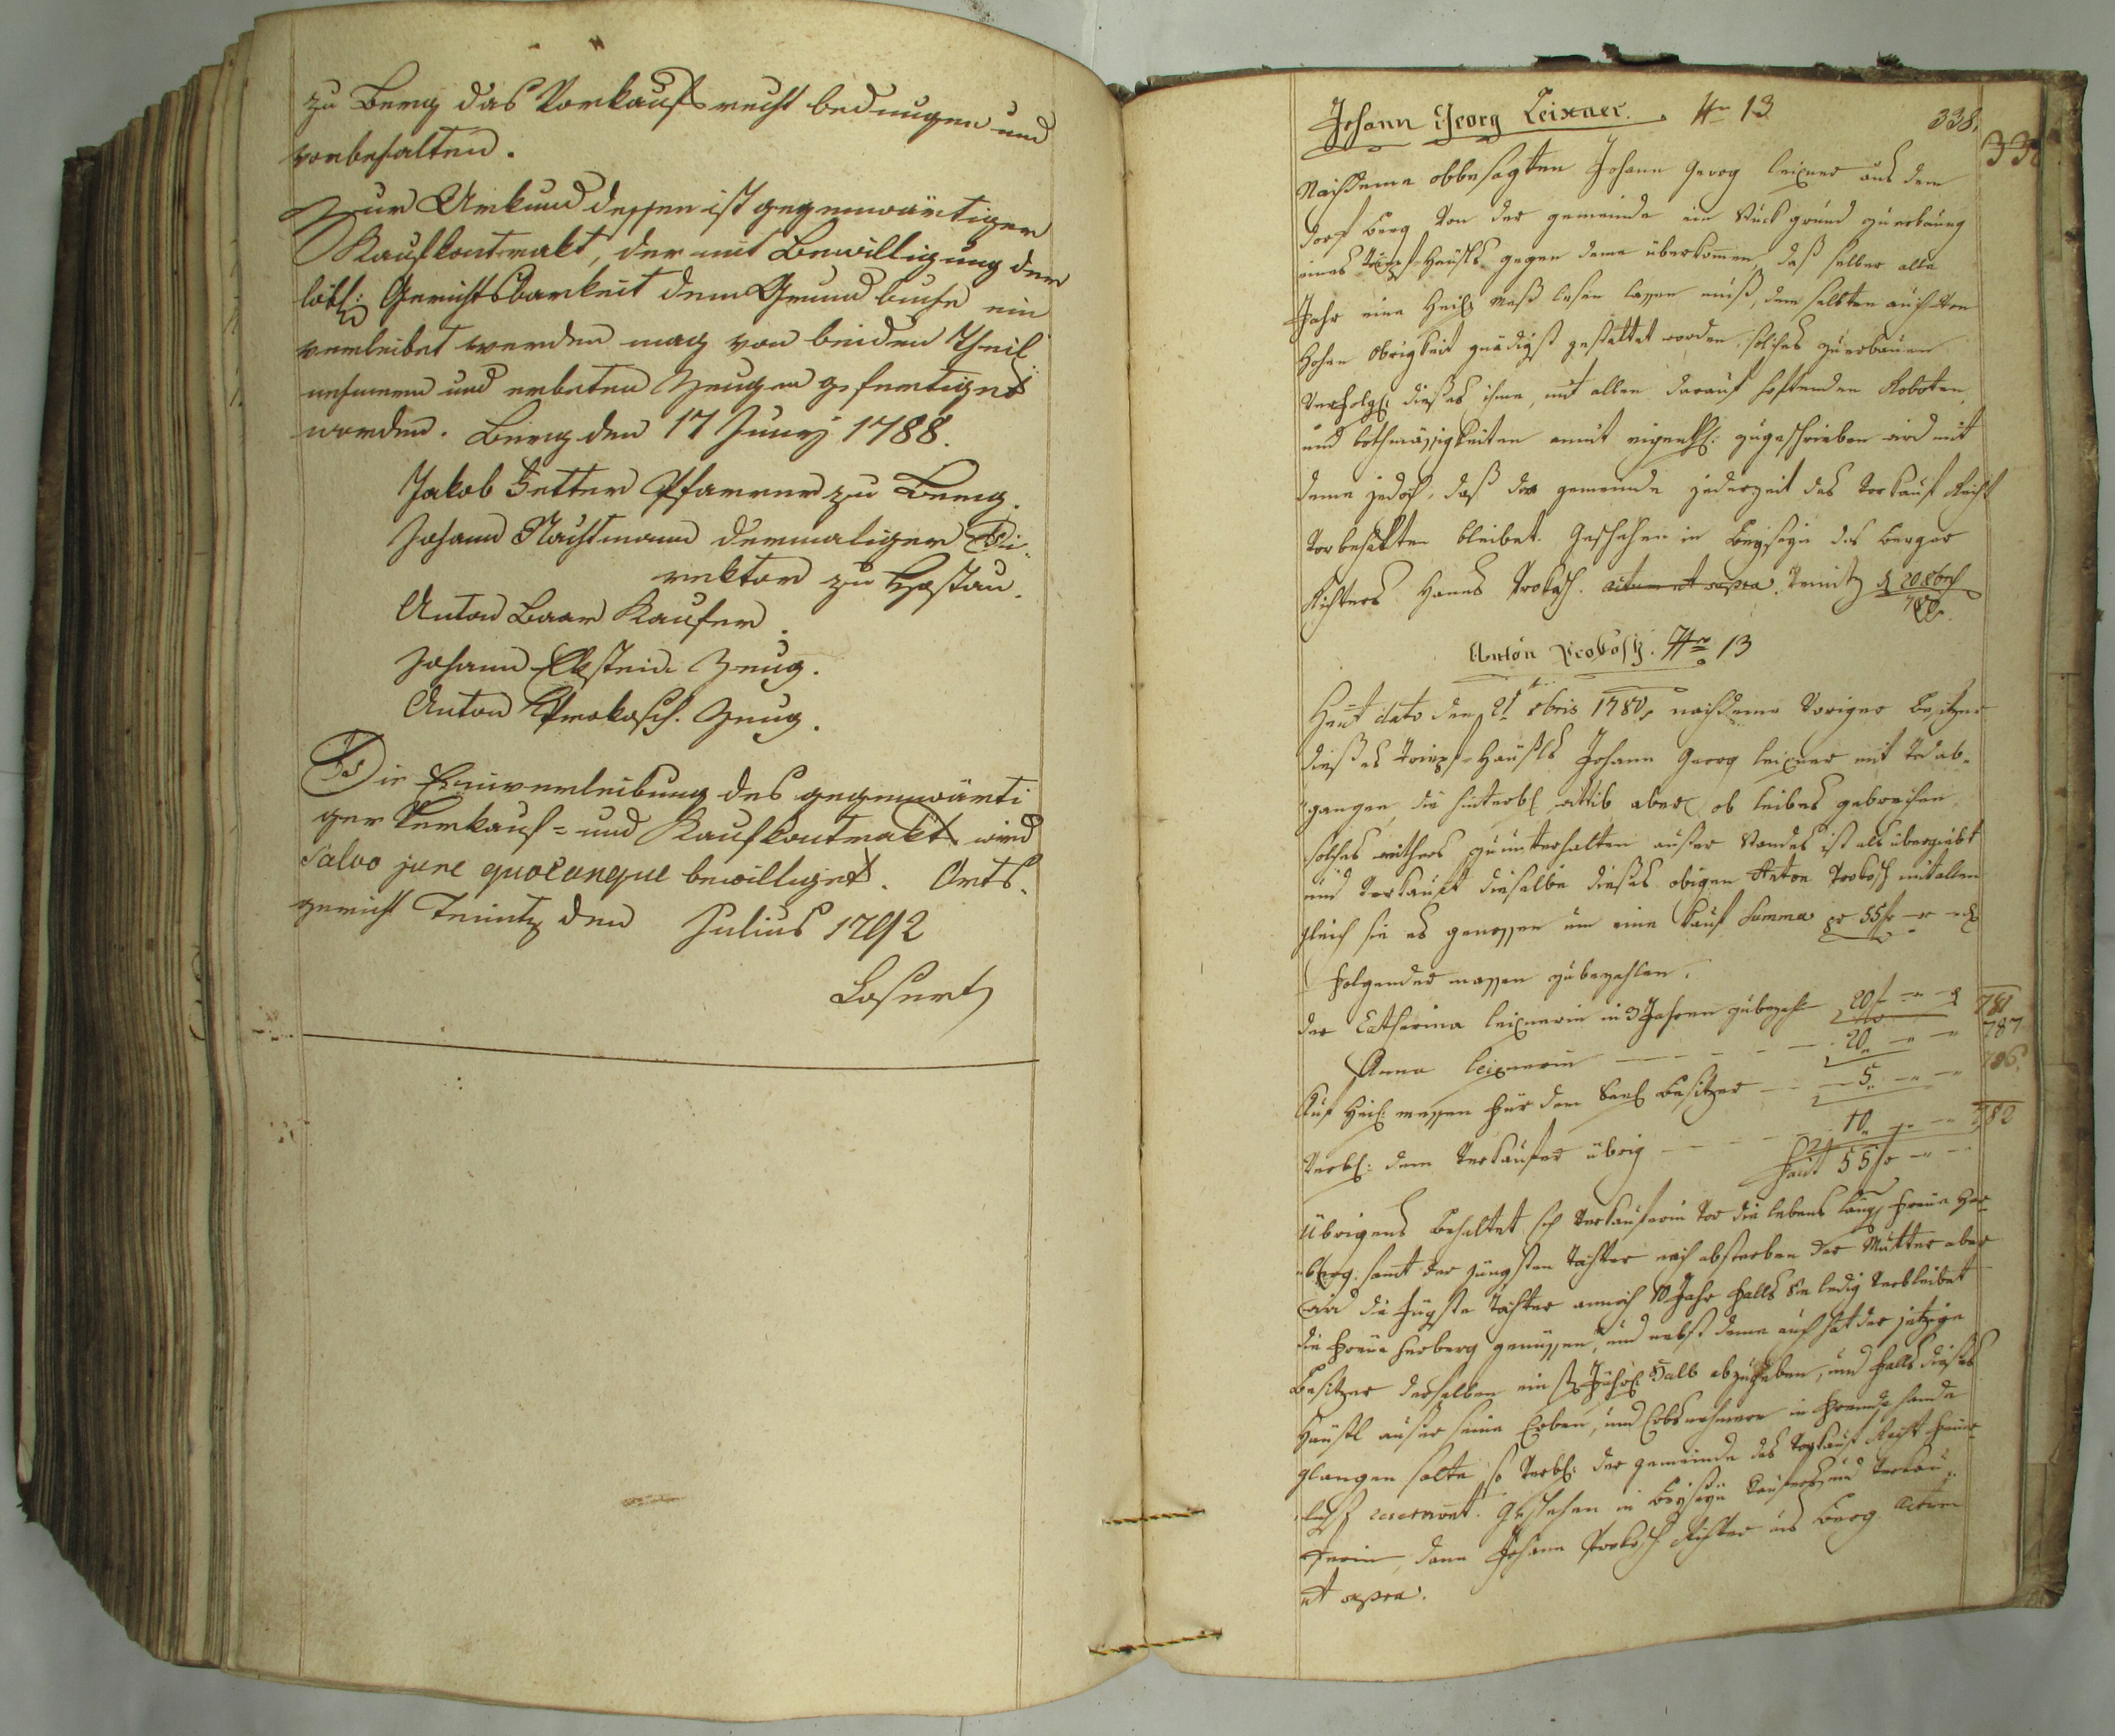 zu Berg das Vorkaufsrecht bedungen und
vorbehalten.
Zur Urkund dessen ist gegenwärtiger
Kaufkontrakt, der mit Bewilligung der
löbl: Gerichtsbarkeit dem Grundbuche ein
verleibet werden mag von beiden Theil
nehmern und erbeten Zeugen gefertiget
worden. Berg den 17 Juny 1788.
Jakob Fetter Pfarrer zu Berg.
Johann Nachtmann dermaliger Di-
rektor zu Hostau.
Anton Baar Kaufer.
Johann Ekstein Zeug.
Anton Prokosch. Zeug.
Die Einverleibung des gegenwärti
ger Verkauf= und Kaufkontrakt wird
Salvo jure quocunque bewilliget. Orts-
gericht Teinitz den Julius 1792
Losert
Johann Georg Leixner. Nro 13
338.
Nachdeme obbesagten Johann Georg Leixner aus dem
Dorf Berg von der gemeinde ein Stuck grund zuerbaung
eines Häusls gegen deme überkomen, daß selber alle
Jahr eine Heil: Meß lesen lassen muß, dem selbten auch von
Hohen Obrigkeit gnädigst gestattet worden solches zuerbauen
dießes ihme, mit allen darauf haftenden Roboten,
und bothmässigkeiten zugeschrieben wird mit
deme jedoch, daß der gemeinde jederzeit das Vorkauf Recht
Vorbehalten bleibet. Geschehen in Beyseyn des Berger
Richters Hanns Prokosch. actum ut supra. Teinitz d 20 8br
780.
Anton Prokosch. Nro 13
Heut dato den 21t 8bris 1780, nachdeme Voriger Besitzer
dießes Häußls Johann Georg Leixner mit Tod ab-
gangen, die hinterbl: wittib aber ob leibes gebrechen
solches weithers zuunterhalten außer Standes ist als übergiebt
und Verkauft dieselbe dießes obigen Anton Prokosch mit allen
gleich sie es genossen um eine Kauf Summa pr 55 f
Folgender massen zubezahlen.
der Catharina Leixnerin in 3 Jahren zubezahl 20 f 781
Anna Leixnerin 20 787
Auf Heil: messen für den Seel: Besitzer 5 786.
Verbl: dem Verkaufer übrig 10 782
facit 55 f
Übrigens behaltet sich Verkauferin Vor die lebens läng: freue Her-
berg. samt der jüngsten Tochter nach absterben der Mutter aber
wird die jüngste Tochter annoch 10 Jahr falls sie ledig Verbleibet
die freue Herberg genüssen, und nebst deme auch hat der jetzige
Besitzer derselben ein abzugeben, und falls dießes
Häusl ausser seine Erben, und Erbsnehmer in Fremde hande
glangen solte, so Verbl: der gemeinde das Vorkauf Recht
reservirt. Geschehen in Beyseyn Kaufers und Verkau-
ferin, dann Johann Prokosch Richter aus Berg actum
ut supra.